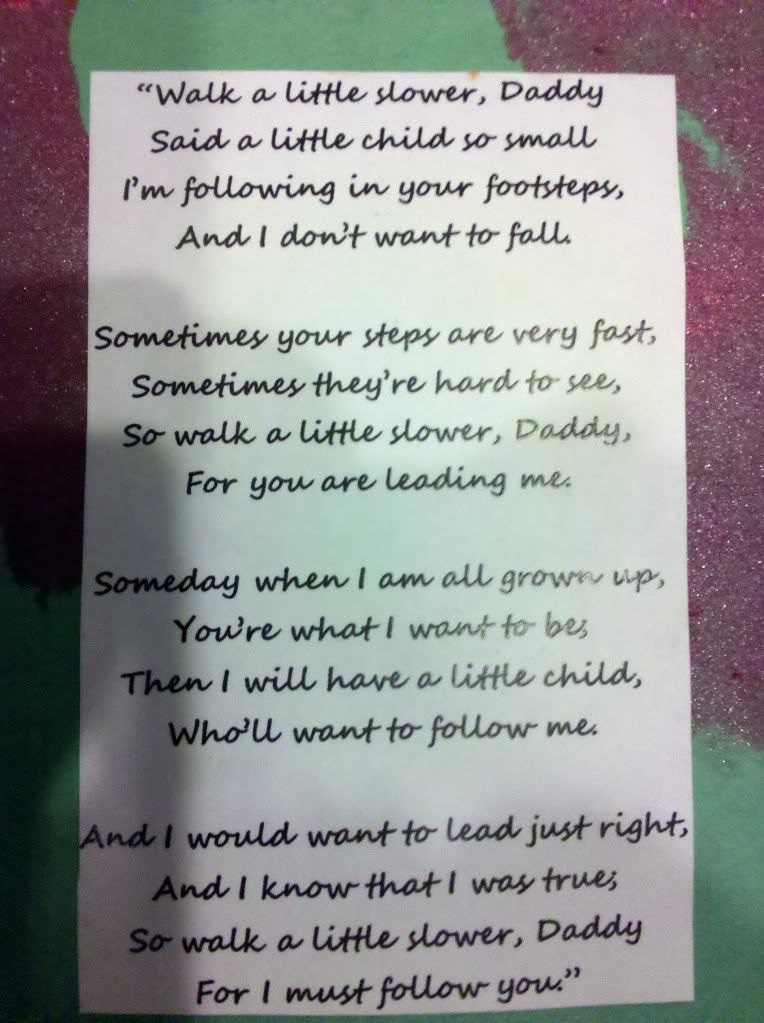 “Walk a little slower, Daddy
Said a little child so small
I'm following in your footsteps,
And I don't want to fall.
Sometimes your steps are very fast,
Sometimes they're hard to see,
So walk a little slower, Daddy,
For you are leading me.
Someday when I am all grown up,
You're what I want to be;
Then I will have a little child,
Who'll want to follow me.
And I would want to lead just right,
And I know that I was true;
So walk a little slower, Daddy
For I must follow you.”